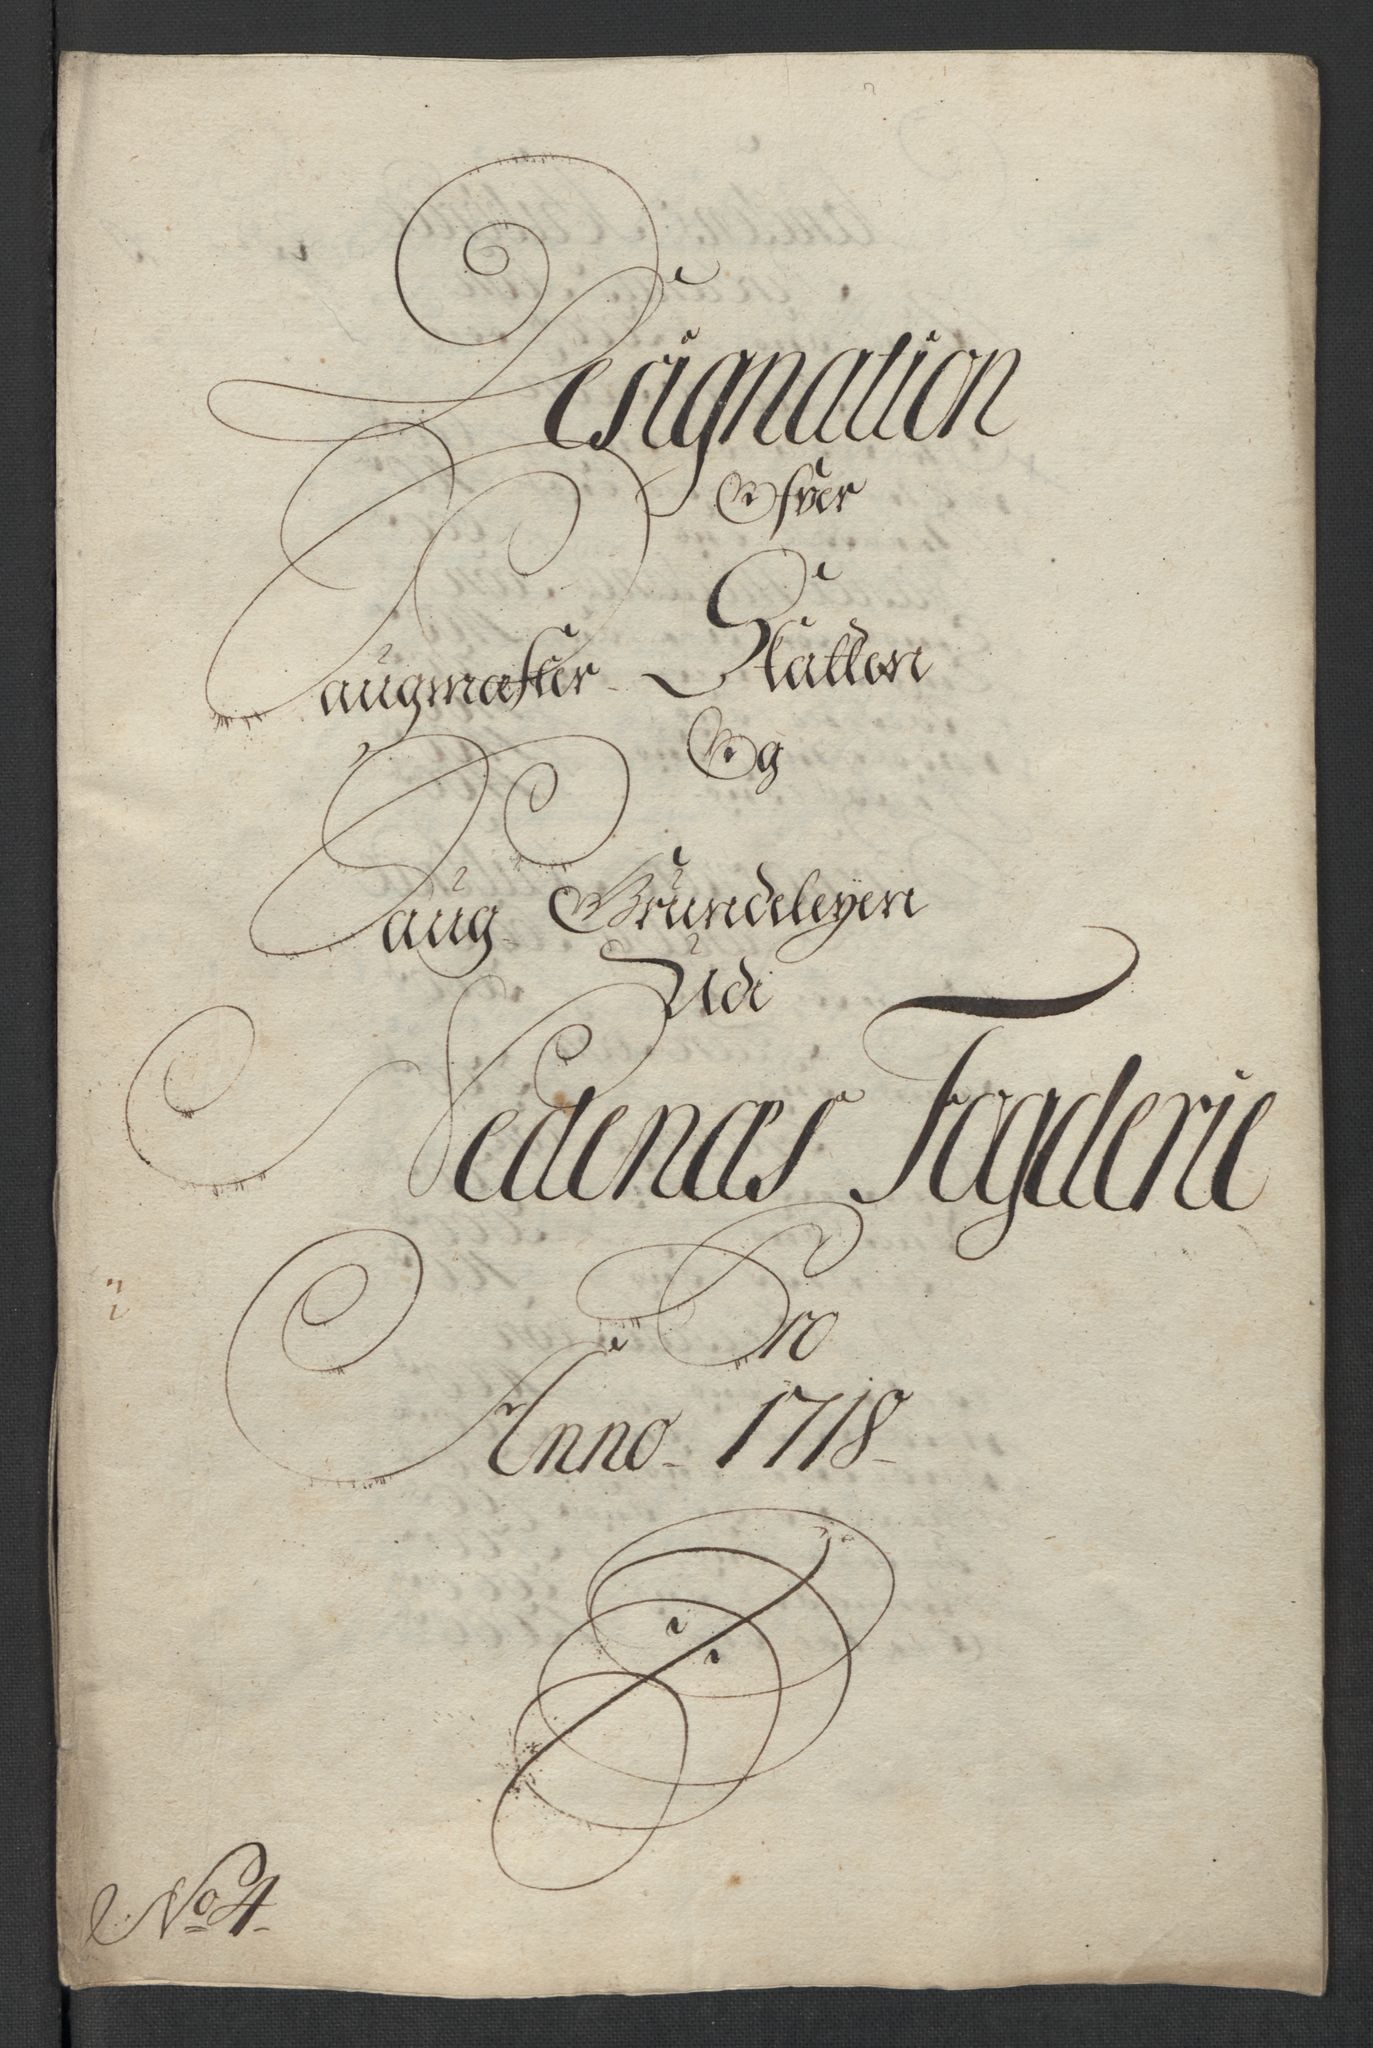 Designation
Ofver
Saugmæster Skatten
Og
Saug Grundeleyen
Udi
Nedenæs Fogderie
Pro
Anno 1718
No 4